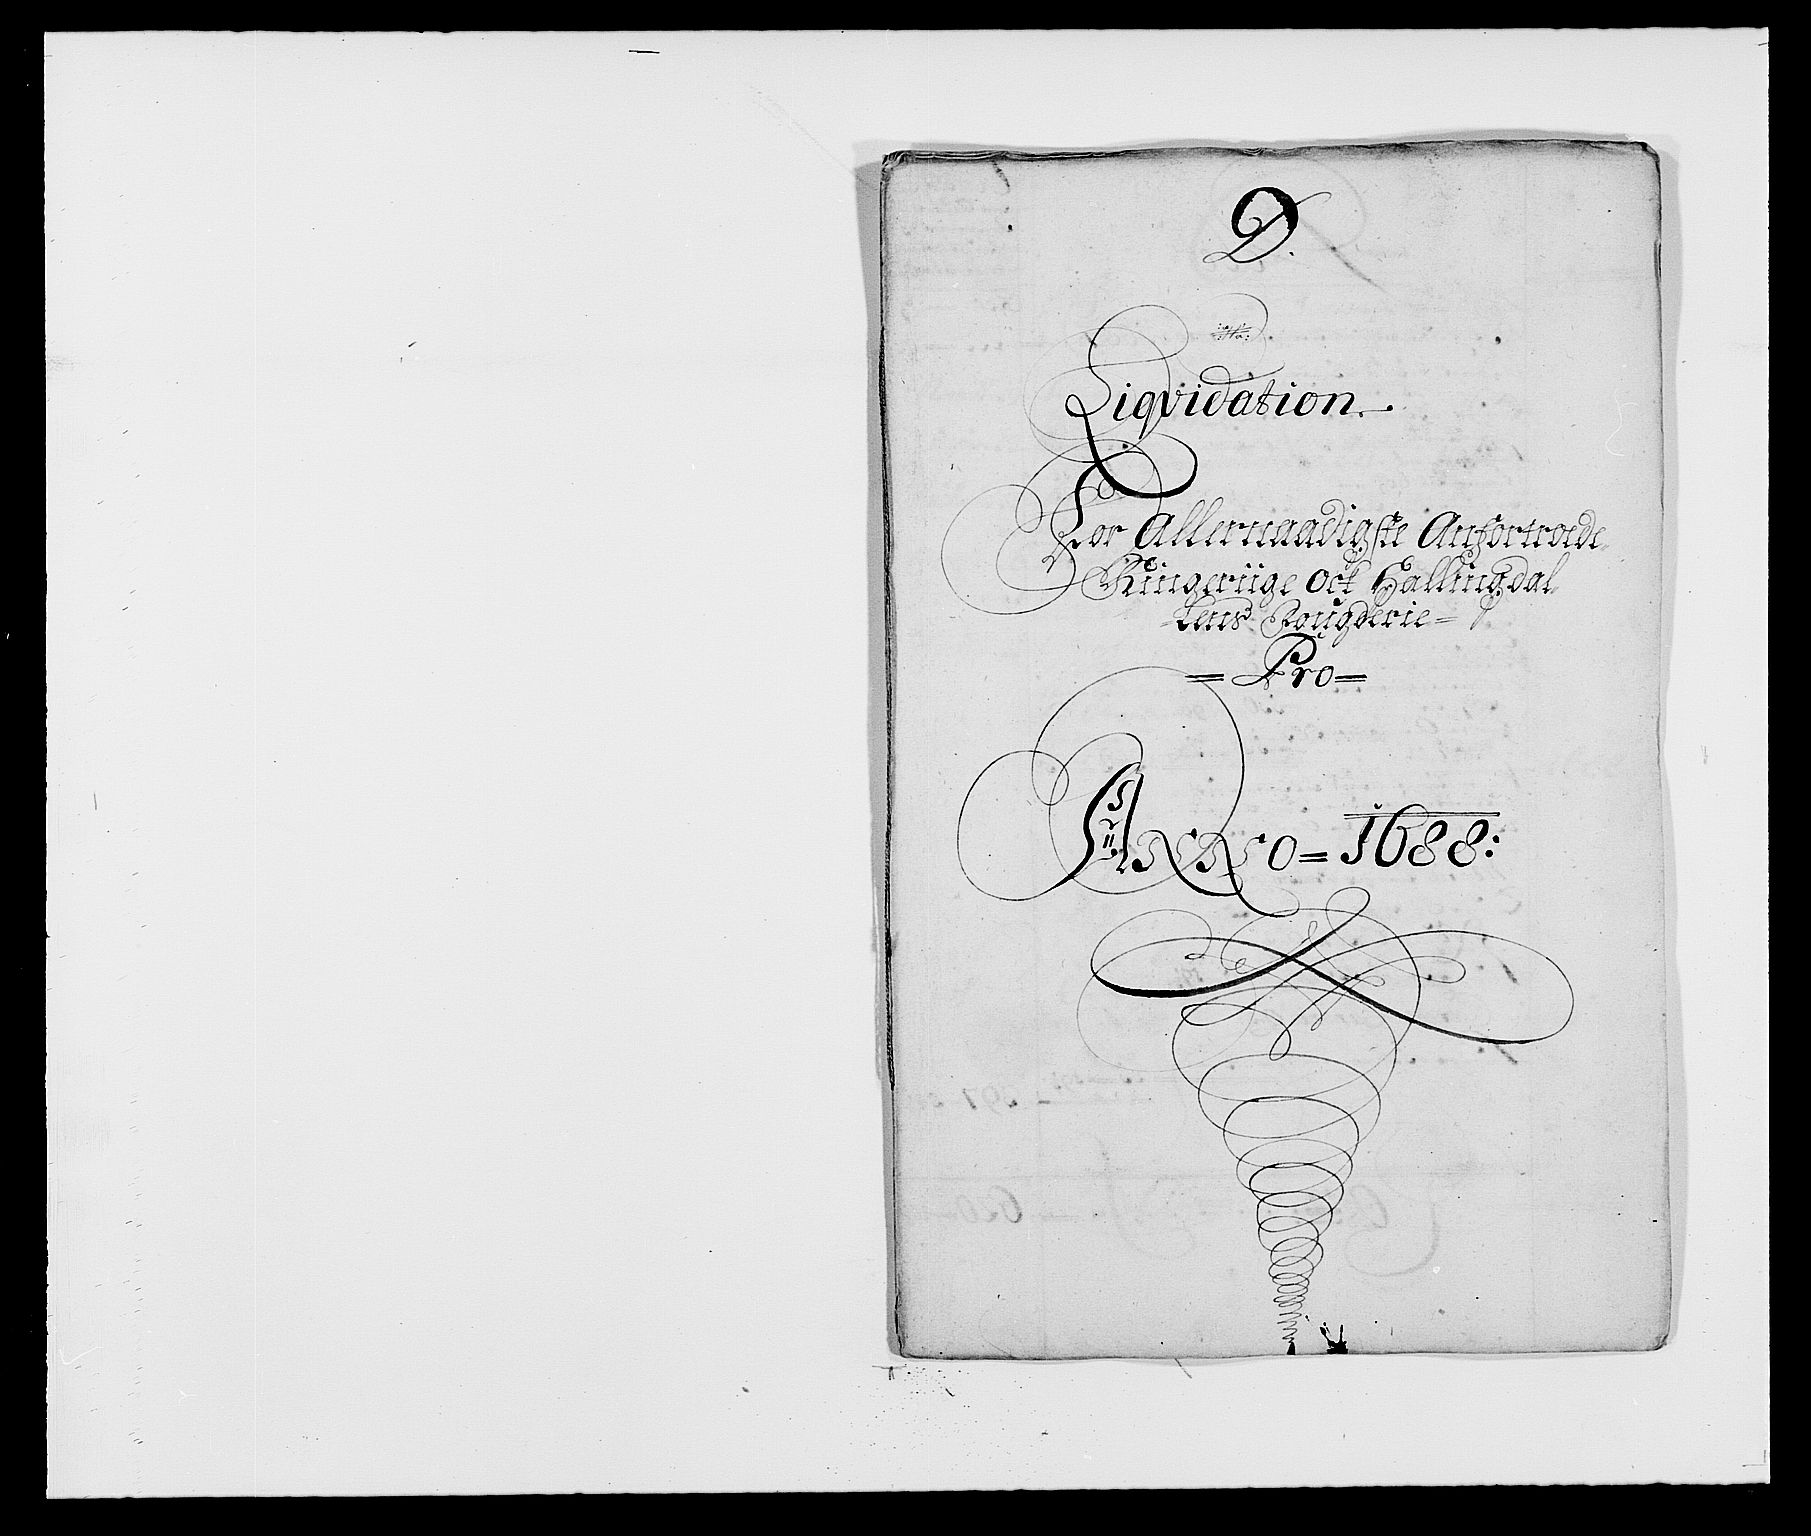 D.
Liqvidation.
For Allernaadigste Anfortroede
Ringeriige Ock Hallingdal-
lens Fougderie=
= Pro =
ANNO = 1688: